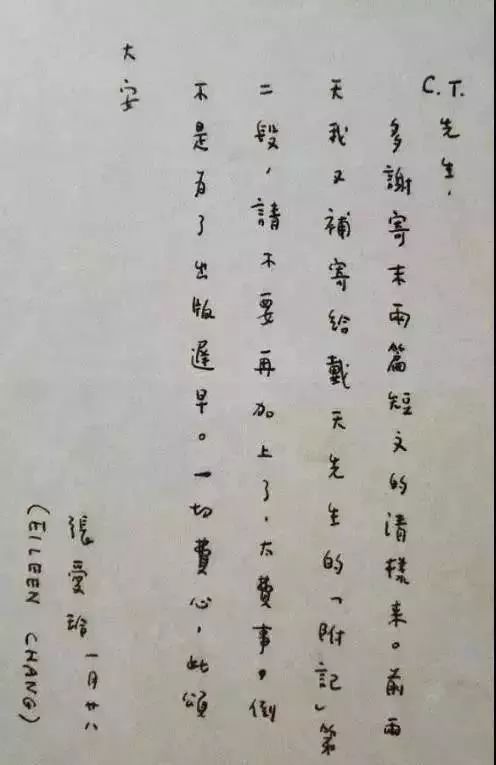 C.T.先生，
多謝寄末兩篇短文的清樣来。前兩
天我又補寄給戴天先生的「附記」第
二段，請不要再加上了，太費事。倒
不是为了出版遲早。一切費心，此頌
大安
張愛玲 一月廿八
(EILEEN CHANG)